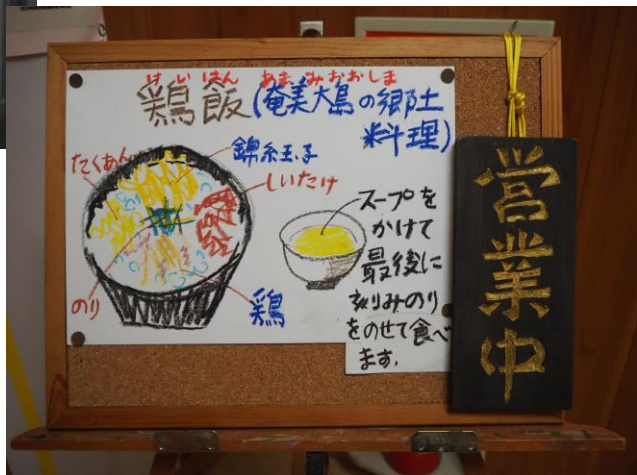 けいはん あまみおおしま
鶏飯(奄美大島の郷土
料理)
錦糸玉子
たくあん
しいたけ
のり
鶏
スープを
かけて
最後に
刻みのり
をのせて食べ
ます。
営業中